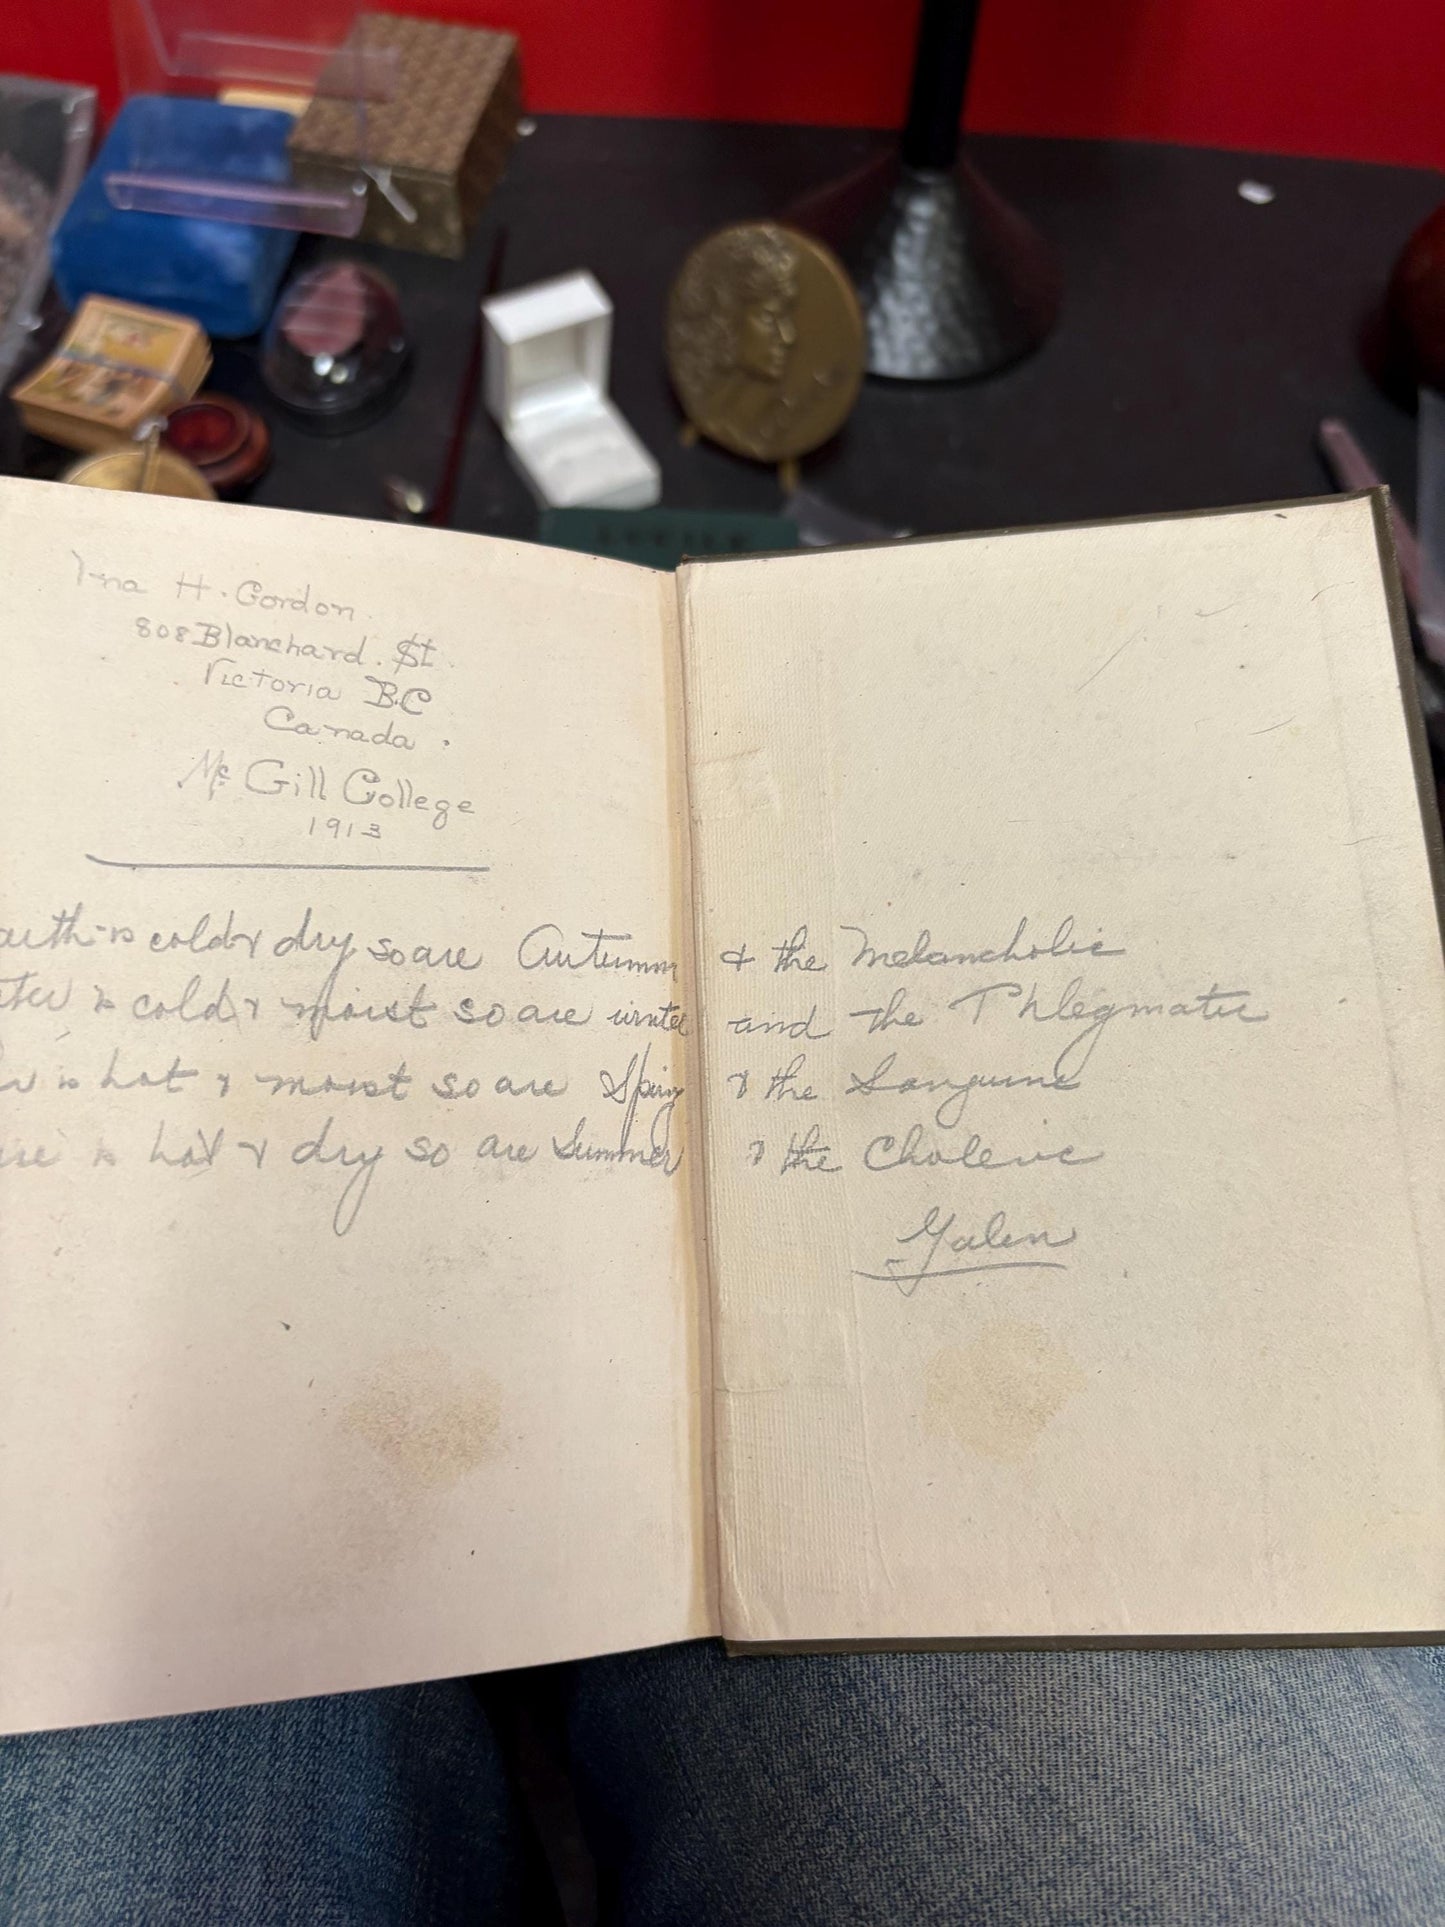 Ina H. Gordon.
808 Blanchard. St.
Victoria B.C
Canada.
Mc Gill College
1913
arth is cold & dry so are Autumn & the Melancholic
ter is cold & moist so are winter and the Phlegmatic
is hot & moist so are Spring & the Sanguine
ire is hot & dry so are Summer & the Choleric
Galen
LUCILE